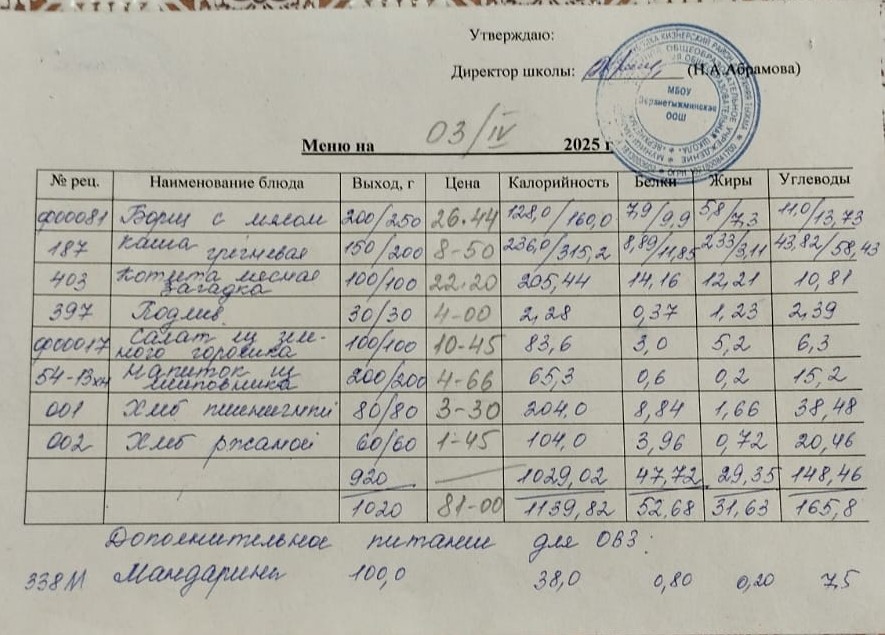 Утверждаю:
Директор школы: (Н.А.Абрамова)
МБОУ
Верхнетыжминская
ООШ
Меню на 03/IV 2025 г
№ рец. Наименование блюда Выход, г Цена Калорийность Белки Жиры Углеводы
ф00081 Борщ с мясом 200/250 26.44 128,0/160,0 7,9/9,9 5,8/7,3 11,0/13,73
187 Каша гречневая 150/200 8-50 236,0/315,2 8,89/11,85 2,33/3,11 43,82/58,43
403 Котлета мясная загадка 100/100 22.20 205,44 14,16 12,21 10,81
397 Подлив 30/30 4-00 2,28 0,37 1,23 2,39
ф00017 Салат из зеле-
ного горошка 100/100 10-45 83,6 3,0 5,2 6,3
54-13хн Напиток из шиповника 200/200 4-66 65,3 0,6 0,2 15,2
001 Хлеб пшеничный 80/80 3-30 204,0 8,84 1,66 38,48
002 Хлеб ржаной 60/60 1-45 104,0 3,96 0,72 20,46
920 — 1029,02 47,72 29,35 148,46
1020 81-00 1139,82 52,68 31,63 165,8
Дополнительное питание для ОВЗ:
338М Мандарины 100,0 38,0 0,80 0,20 7,5